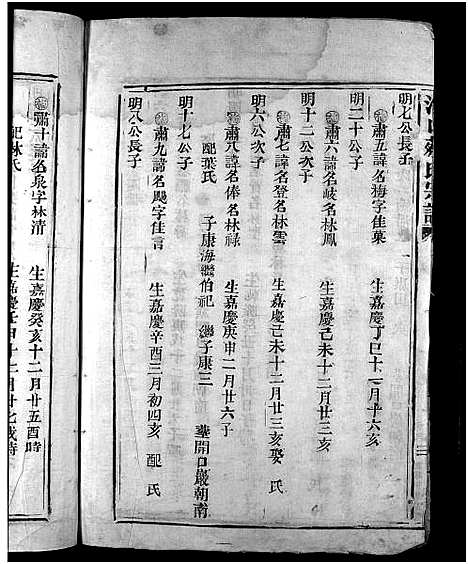 明七公長子
肅五諱名梅字佳菓　生嘉慶丁巳十二月十六亥
明二十公子
肅六諱名岐名林鳳　生嘉慶己未十二月廿三亥
明十二公次子
肅七諱名登名林雲　生嘉慶己未十二月廿三亥　娶　氏
明六公次子
肅八諱名俸名林祿　生嘉慶庚申二月廿六子
配葉氏　子康海繼伯祀　繼子康三　塟開口巖朝南
明十七公子
肅九諱名颺字佳言　生嘉慶辛酉三月初四亥　配　氏
明八公長子
肅十諱名泉字林清　生嘉慶癸亥十二月廿五酉時
配林氏　生嘉慶壬申十二月廿七戌時